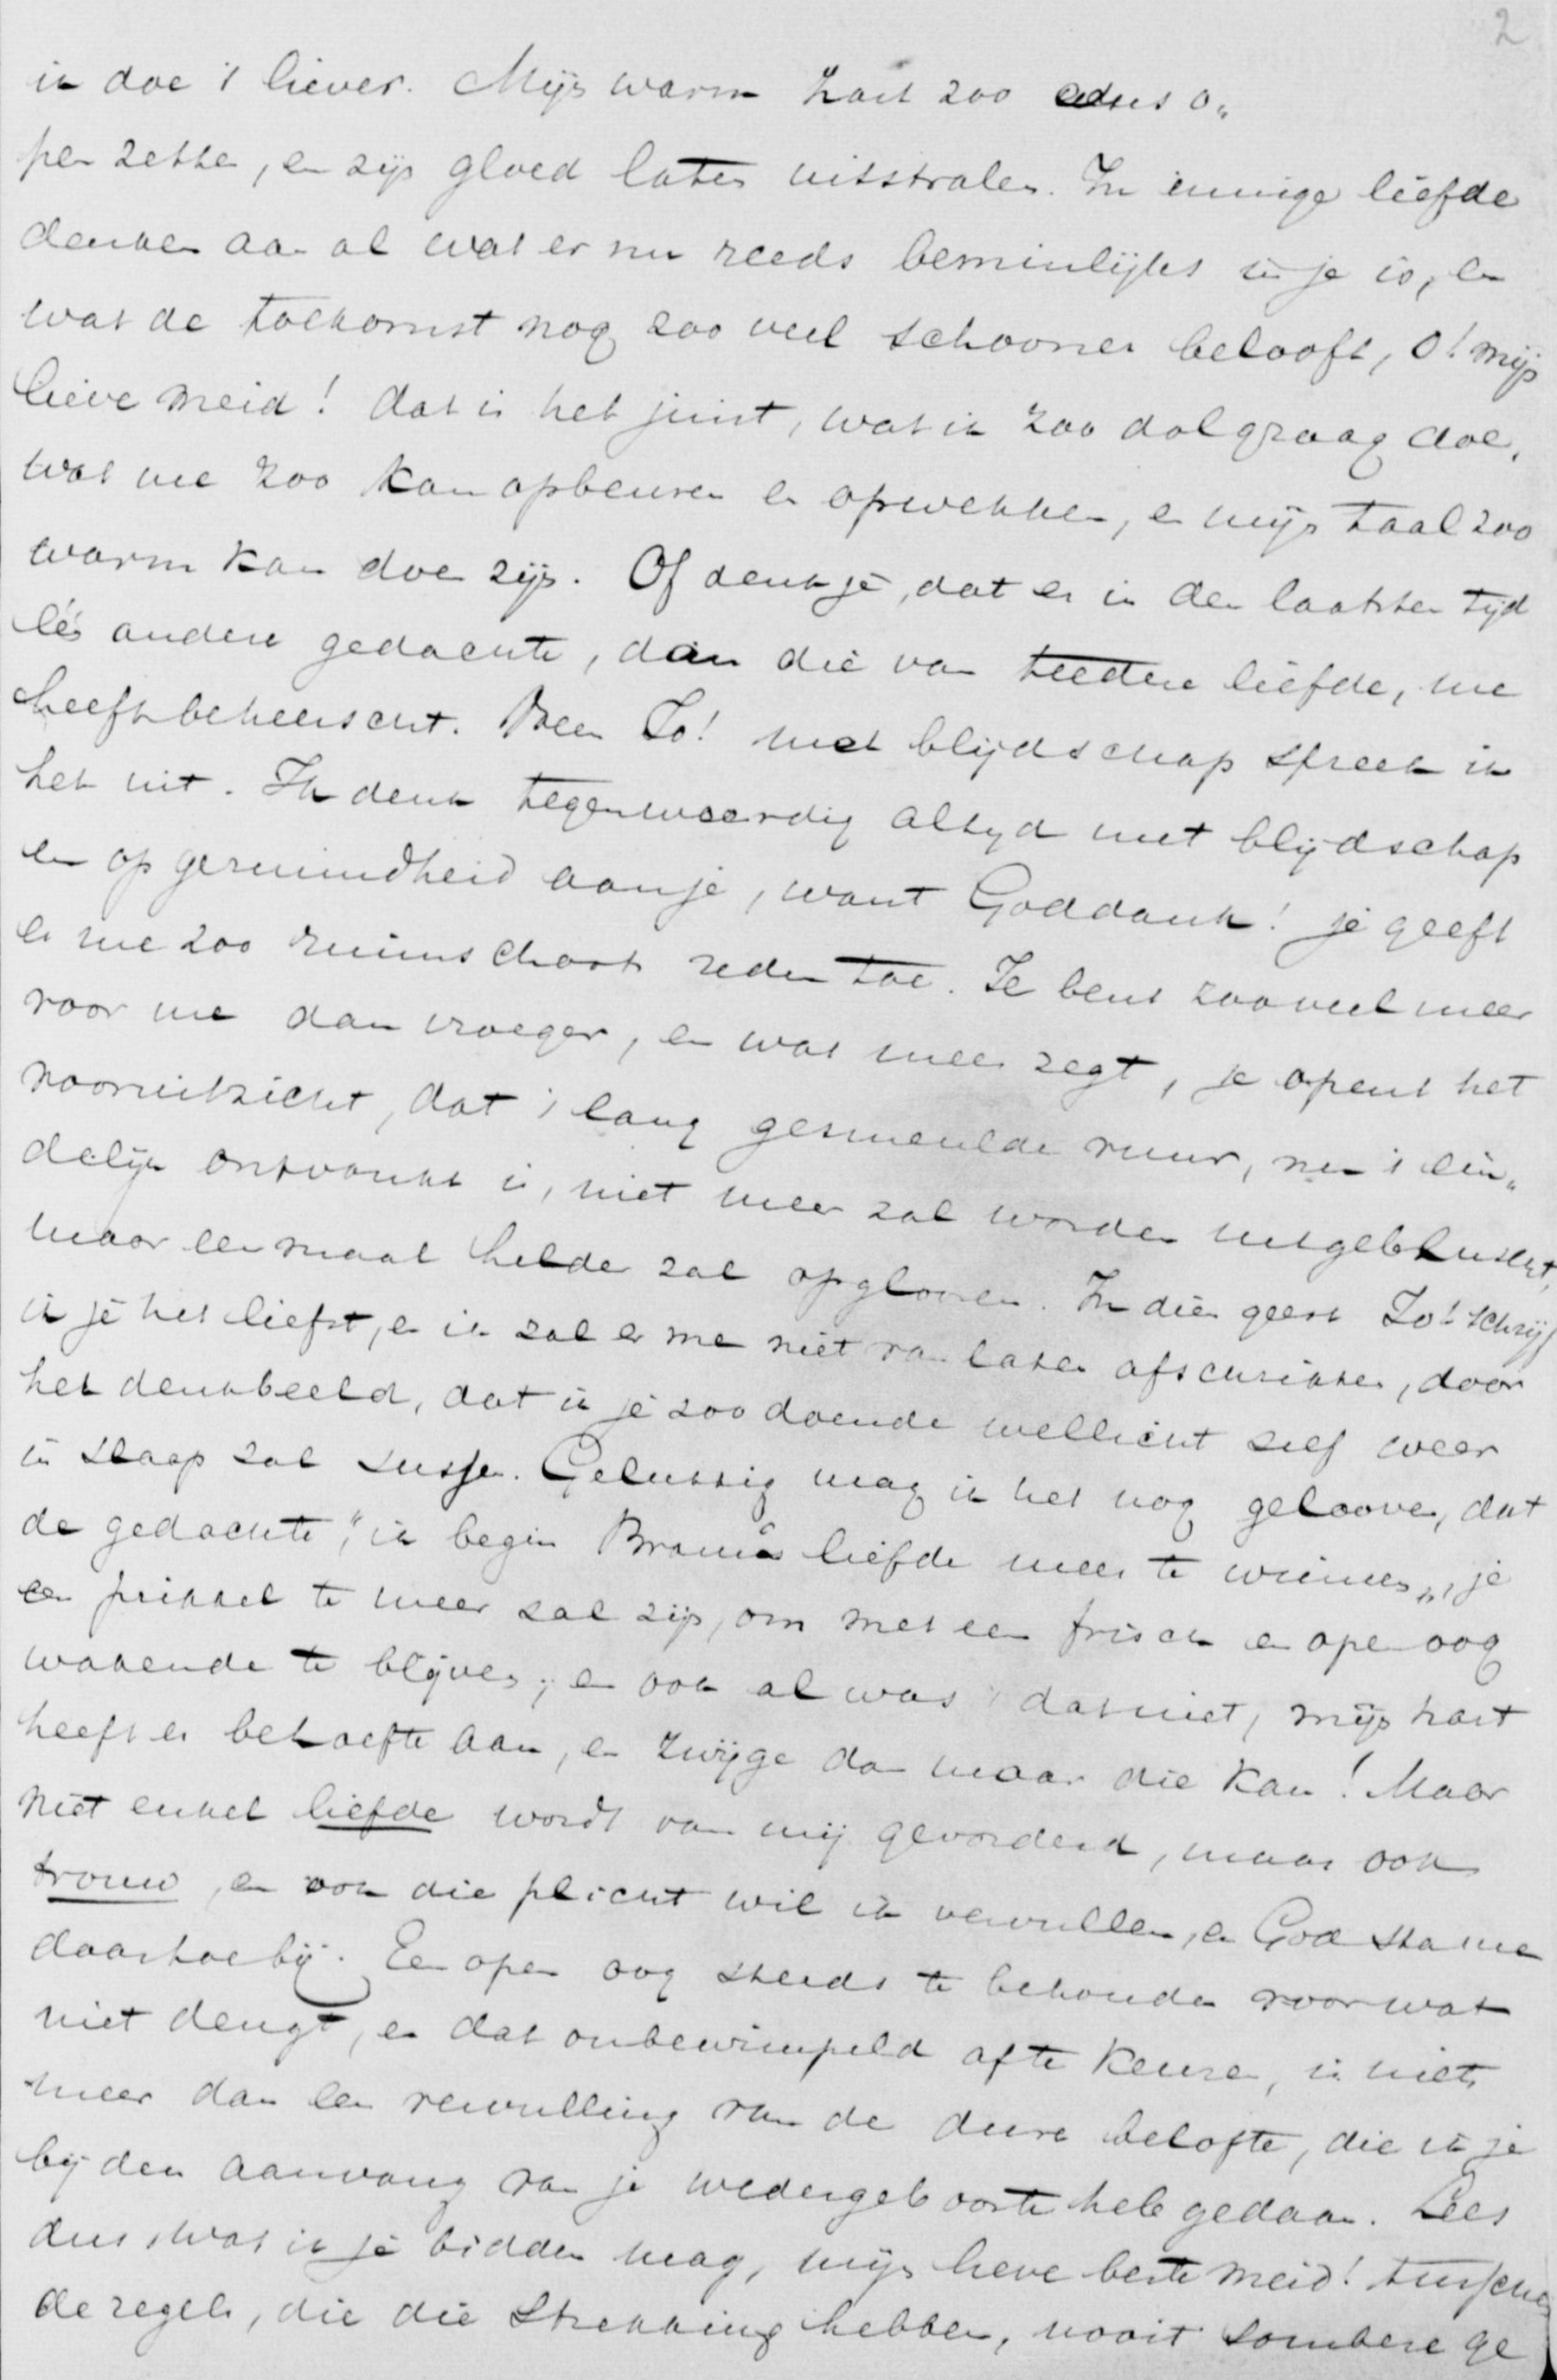 2
ik doe 't liever. Mijn warm hart zoo eens o„
pen zetten, en zijn gloed laten uitstralen. In innige liefde
denken aan al wat er nu reeds beminlijks in je is, en
wat de toekomst nog zoo veel schooner belooft, O! mijn
lieve meid! dat is het juist, wat ik zoo dolgraag doe,
wat me zoo kan opbeuren en opwekken, en mijn taal zoo
warm kan doen zijn. Of denk je, dat er in den laatsten tijd
één andere gedachte, dan die van teedere liefde, me
heeft beheerscht. Neen Jo! met blijdschap spreek ik
het uit. Ik denk tegenwoordig altyd met blijdschap
en opgeruimdheid aan je, want Goddank! je geeft
er me zoo ruimschoots reden toe. Je bent zooveel meer
voor me dan vroeger, en wat meer zegt, je opent het
vooruitzicht, dat 't lang gesmeulde vuur, nu 't ein„
delijk ontvonkt is, niet meer zal worden uitgebluscht,
maar eenmaal helder zal opgloeien. In dien geest Jo! schrijf
ik je het liefst, en ik zal er me niet van laten afschrikken, door
het denkbeeld, dat ik je zoodoende wellicht zelf weer
in slaap zal sussen. Gelukkig mag ik het nog gelooven, dat
de gedachte, "ik begin Bram's liefde meer te winnen", je
een prikkel te meer zal zijn, om met een frisch en open oog
wakende te blijven; en ook al was dat niet, mijn hart
heeft er behoefte aan, en zwijge dan maar die kan! Maar
niet enkel liefde wordt van mij gevorderd, maar ook
trouw, en ook die plicht wil ik vervullen, en God sta me
daartoe bij. Een open oog steeds te behouden voor wat
niet deugt, en dat onbewimpeld af te keuren, is niets
meer dan een vervulling van de dure belofte, die ik je
bij den aanvang van je wedergeboorte heb gedaan. Lees
dus, wat ik je bidden mag, mijn lieve beste meid! tusschen
de regels, die die strekking hebben, nooit sombere ge